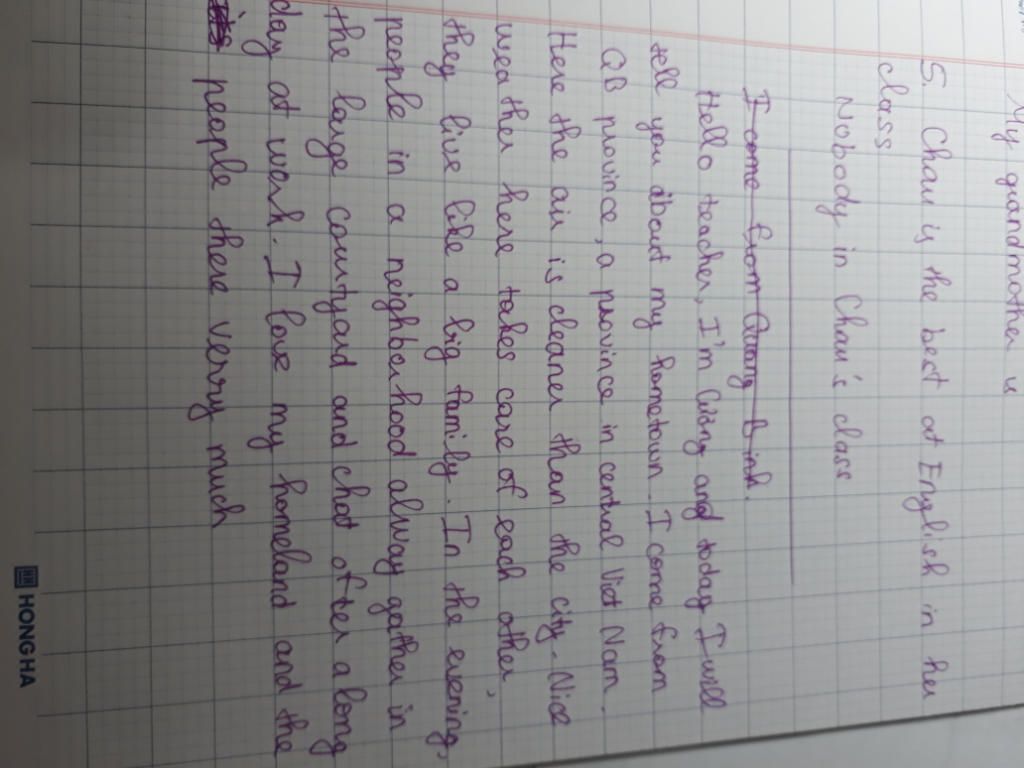 My grandmother is
5. Chau is the best at English in her
class
Nobody in Chau's class
I come from Quang Binh.
Hello teacher, I'm Giang and today I will
tell you about my hometown. I come from
QB province, a province in central Viet Nam.
Here the air is cleaner than the city. Nice
weather here takes care of each other,
they live like a big family. In the evening,
people in a neighberhood alway gather in
the large courtyard and chat after a long
day at work. I love my homeland and the
people there verry much
HONG HA